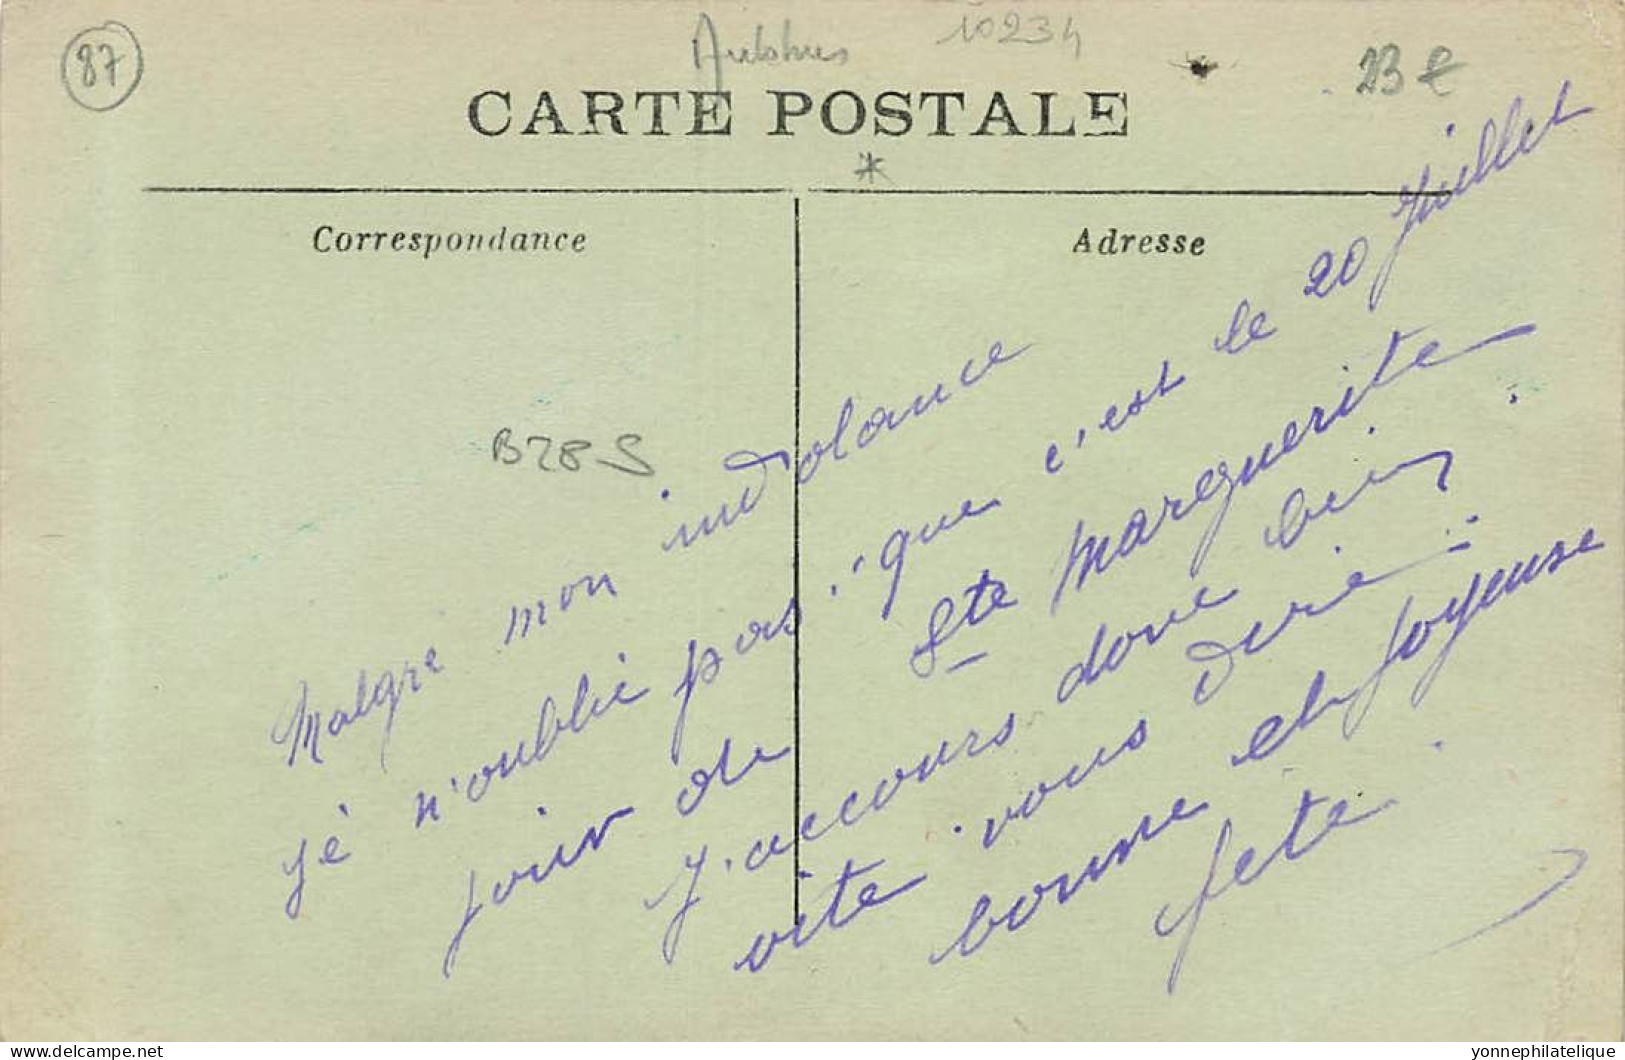 87
Autobus 10234
23 €
CARTE POSTALE
*
Correspondance
Adresse
B28S
Malgré mon indolance
je n'oublie pas que c'est le 20 Juillet
jour de Ste Marguerite
J'accours donc bien
vite vous dire
bonne et joyeuse
fete
yonnephilatelie
www.delcampe.net